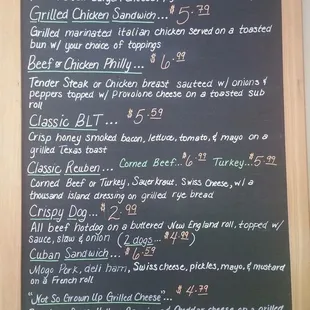 Grilled Chicken Sandwich... $5.79
Grilled marinated italian chicken served on a toasted
bun w/ your choice of toppings
Beef or Chicken Philly... $6.99
Tender Steak or Chicken breast sauteed w/ onions &
peppers topped w/ Provolone cheese on a toasted sub
roll
Classic BLT... $5.59
Crisp honey smoked bacon, lettuce, tomato, & mayo on a
grilled Texas toast
Classic Reuben... Corned Beef...$6.99 Turkey...$5.99
Corned Beef or Turkey, Sauerkraut, Swiss Cheese, w/ a
thousand island dressing on grilled rye bread
Crispy Dog... $2.99
All beef hotdog on a buttered New England roll, topped w/
sauce, slaw & onion (2 dogs... $4.99)
Cuban Sandwich... $6.59
Mogo Pork, deli ham, Swiss cheese, pickles, mayo, & mustard
on a French roll
"Not So Grown Up Grilled Cheese"... $4.79